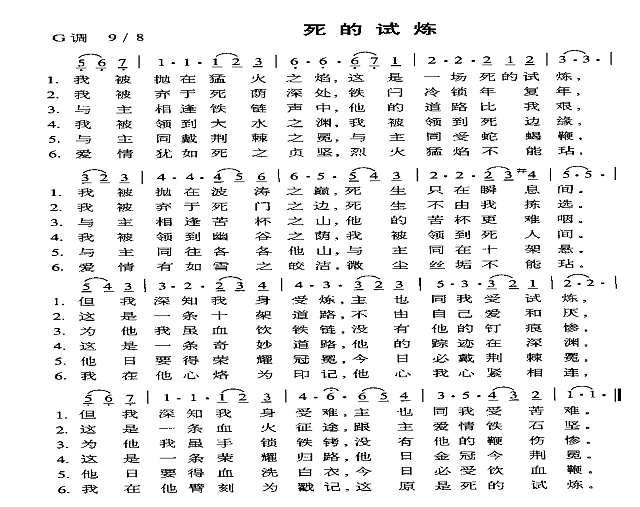 死的试炼
G调 9/8
5 6 7 | 1·1·1 2 3 | 6·6·6 7 1 | 2·2·2 1 2 | 3·3· |
1. 我被抛在猛火之焰,这是一场死的试炼,
2. 我被弃于死荫深处,铁闩冷锁年复年,
3. 与主相逢铁链声中,他的道路比我艰,
4. 我被领到大水之渊,我被领到死边缘,
5. 与主同戴荆棘之冕,与主同受蛇蝎鞭。
6. 爱情犹如死之贞坚,烈火猛焰不能玷,
3 2 3 | 4·4·4 5 6 | 6·5·5 4 3 | 2·2·2 3 4 | 5·5· |
1. 我被抛在波涛之巅,死生只在瞬息间。
2. 我被弃于死门之边,死生不由我拣选。
3. 与主相逢苦杯之山,他的苦杯更难咽。
4. 我被领到幽谷之荫,我被领到死人间。
5. 与主同往各各他山,与主同在十架悬。
6. 爱情有如雪之皎洁,微尘丝垢不能玷。
5 4 3 | 3·2·2 3 4 | 4·3·3 2 3 | 5·3·3 2 1 | 2·2· |
1. 但我深知我身受炼,主也同我受试炼,
2. 这是一条十架道路,不由自己爱和厌,
3. 为他我虽血饮铁链,没有他的钉痕惨,
4. 这是一条奇妙道路,他的踪迹在深渊,
5. 他日要得荣耀冠冕,今日必戴荆棘冕,
6. 我在他心烙为印记,他心我心紧相连,
5 6 7 | 1·1·1 2 3 | 4·6·6 5 4 | 3·5·4 3 2 | 1·1· ‖
1. 但我深知我身受难,主也同我受苦难。
2. 这是一条血火征途,跟主爱情铁石坚。
3. 为他我虽手锁铁铐,没有他的鞭伤惨。
4. 这是一条荣耀归路,他日金冠今荆冕。
5. 他日要得血洗白衣,今日必受饮血鞭。
6. 我在他臂刻为戳记,这原是死的试炼。